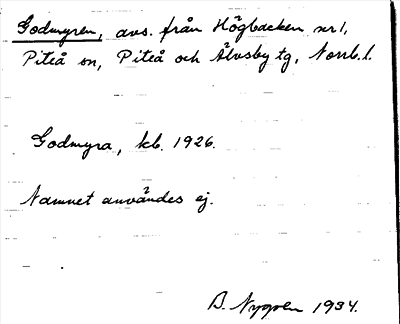 Godmyren, avs. från Högbacken nr 1,
Piteå sn, Piteå och Älvsby tg, Norrb. l.
Godmyra, kb. 1926.
Namnet användes ej.
B. Nygren 1934.